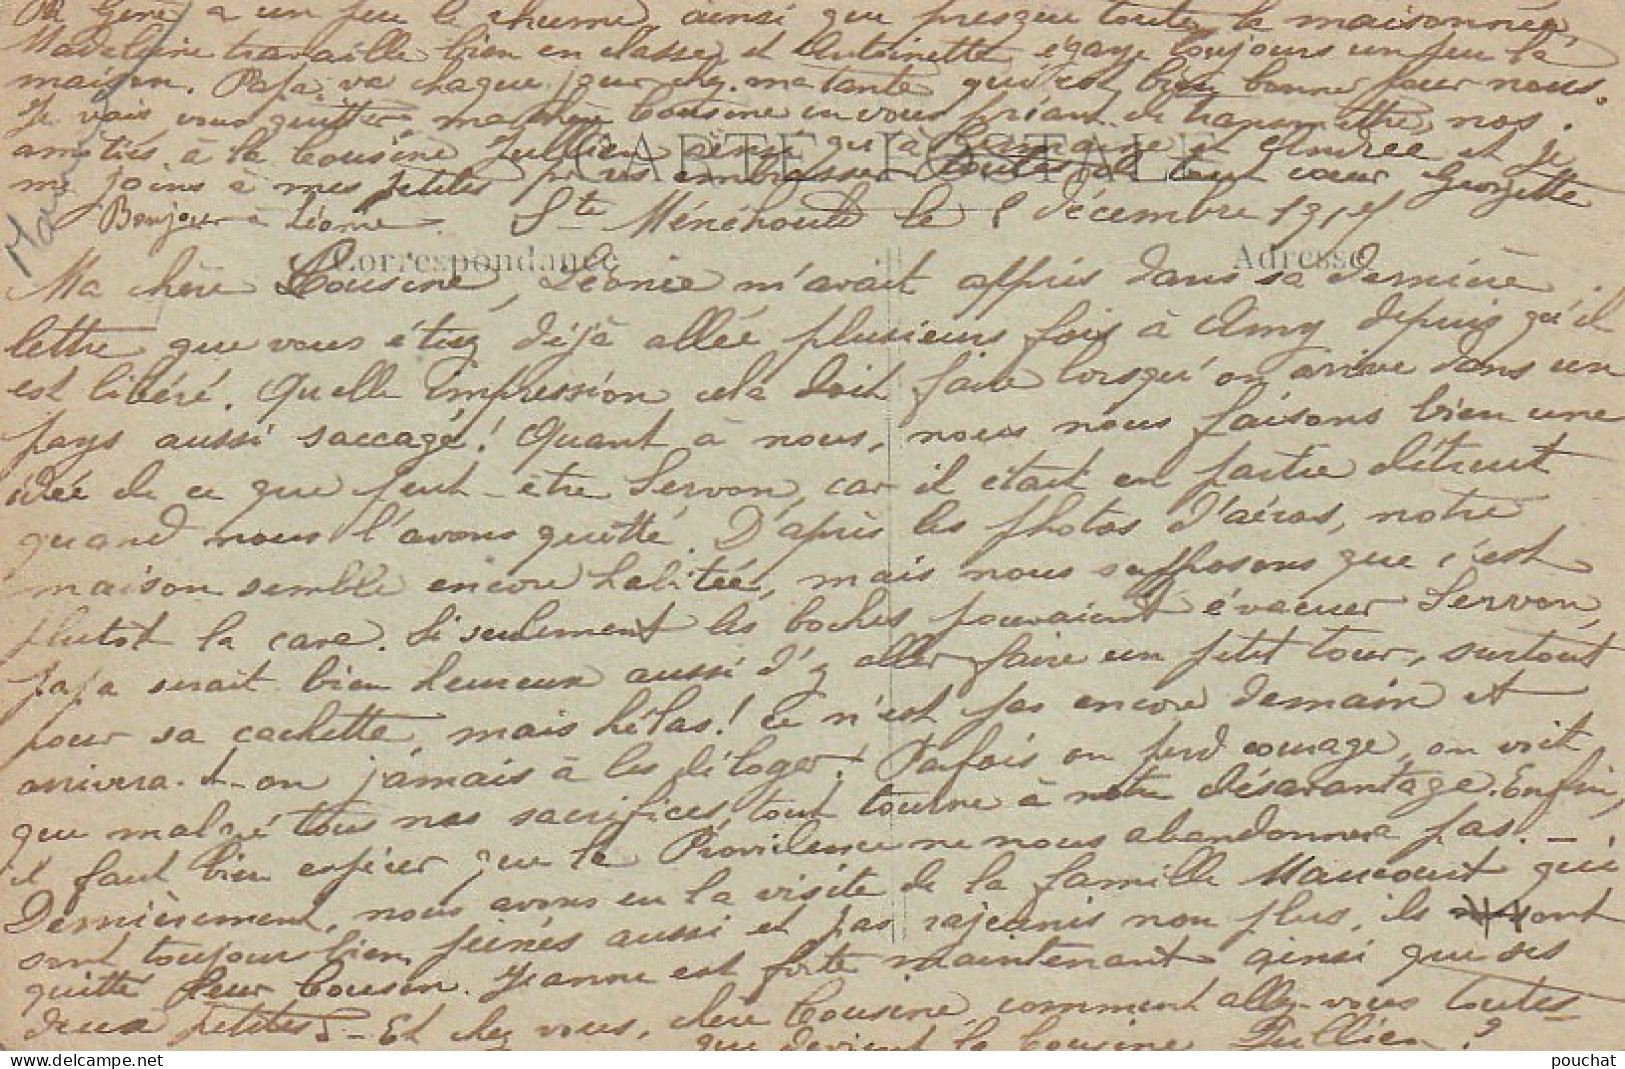 Gené a un peu le rhume, ainsi que presque toute la maisonnée,
Madeleine travaille bien en classe, et Antoinette égaye toujours un peu la
maison. Papa va chaque jour chez ma tante qui est bien bonne pour nous.
Je vais vous quitter, ma chère Cousine en vous priant de transmettre nos
amitiés à la Cousine Jullien ainsi qu'à Germaine et Andrée et je
me joins à mes petites pour embrasser toutes de tout cœur Georgette
Bonjour à Léonie.
CARTE POSTALE
Ste Ménéhould le 8 décembre 1915
Correspondance
Adresse
Ma chère Cousine, Léonie m'avait appris dans sa dernière
lettre que vous étiez déjà allée plusieurs fois à Amy depuis qu'il
est libéré. Quelle impression cela doit faire lorsqu'on arrive dans un
pays aussi saccagé! Quant à nous, nous nous faisons bien une
idée de ce que peut-être Servon, car il était en partie détruit
quand nous l'avons quitté. D'après les photos d'aéros, notre
maison semble encore habitée, mais nous supposons que c'est
plutôt la cave. Si seulement les boches pouvaient évacuer Servon,
papa serait bien heureux aussi d'y aller faire un petit tour, surtout
pour sa cachette, mais hélas! ce n'est pas encore demain et
arrivera-t-on jamais à les déloger. Parfois on perd courage, on voit
que malgré tous nos sacrifices, tout tourne à notre désavantage. Enfin,
il faut bien espérer que la Providence ne nous abandonnera pas. —
Dernièrement, nous avons eu la visite de la famille Maucourt qui
sont toujours bien peinés aussi et pas rajeunis non plus, ils ont
quitté leur Cousin. Jeanne est forte maintenant ainsi que ses
deux petites. — Et chez vous, chère Cousine, comment allez-vous toutes —
que devient la Cousine Jullien?
pouchat